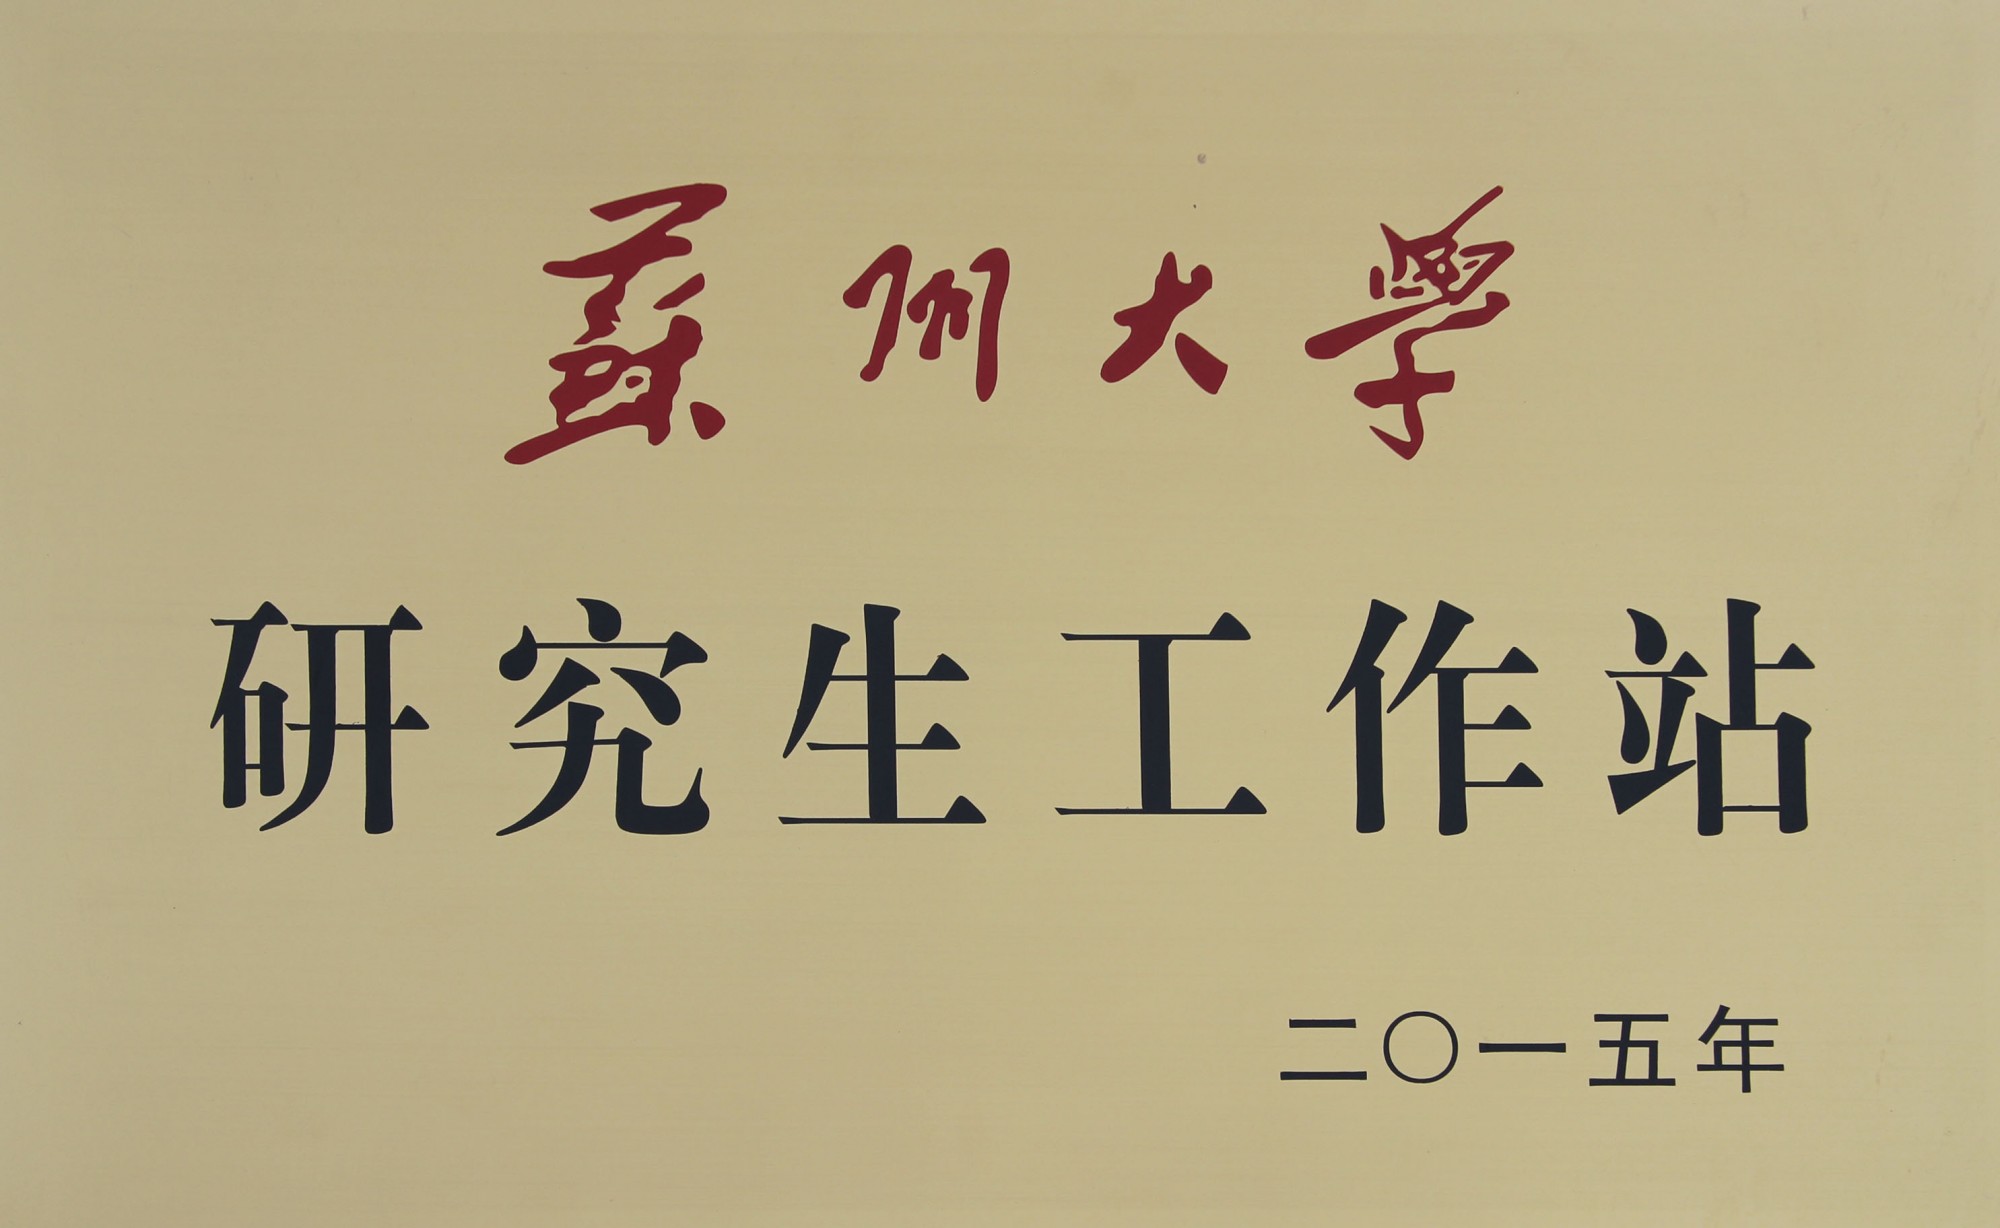 蘇州大學
研究生工作站
二〇一五年